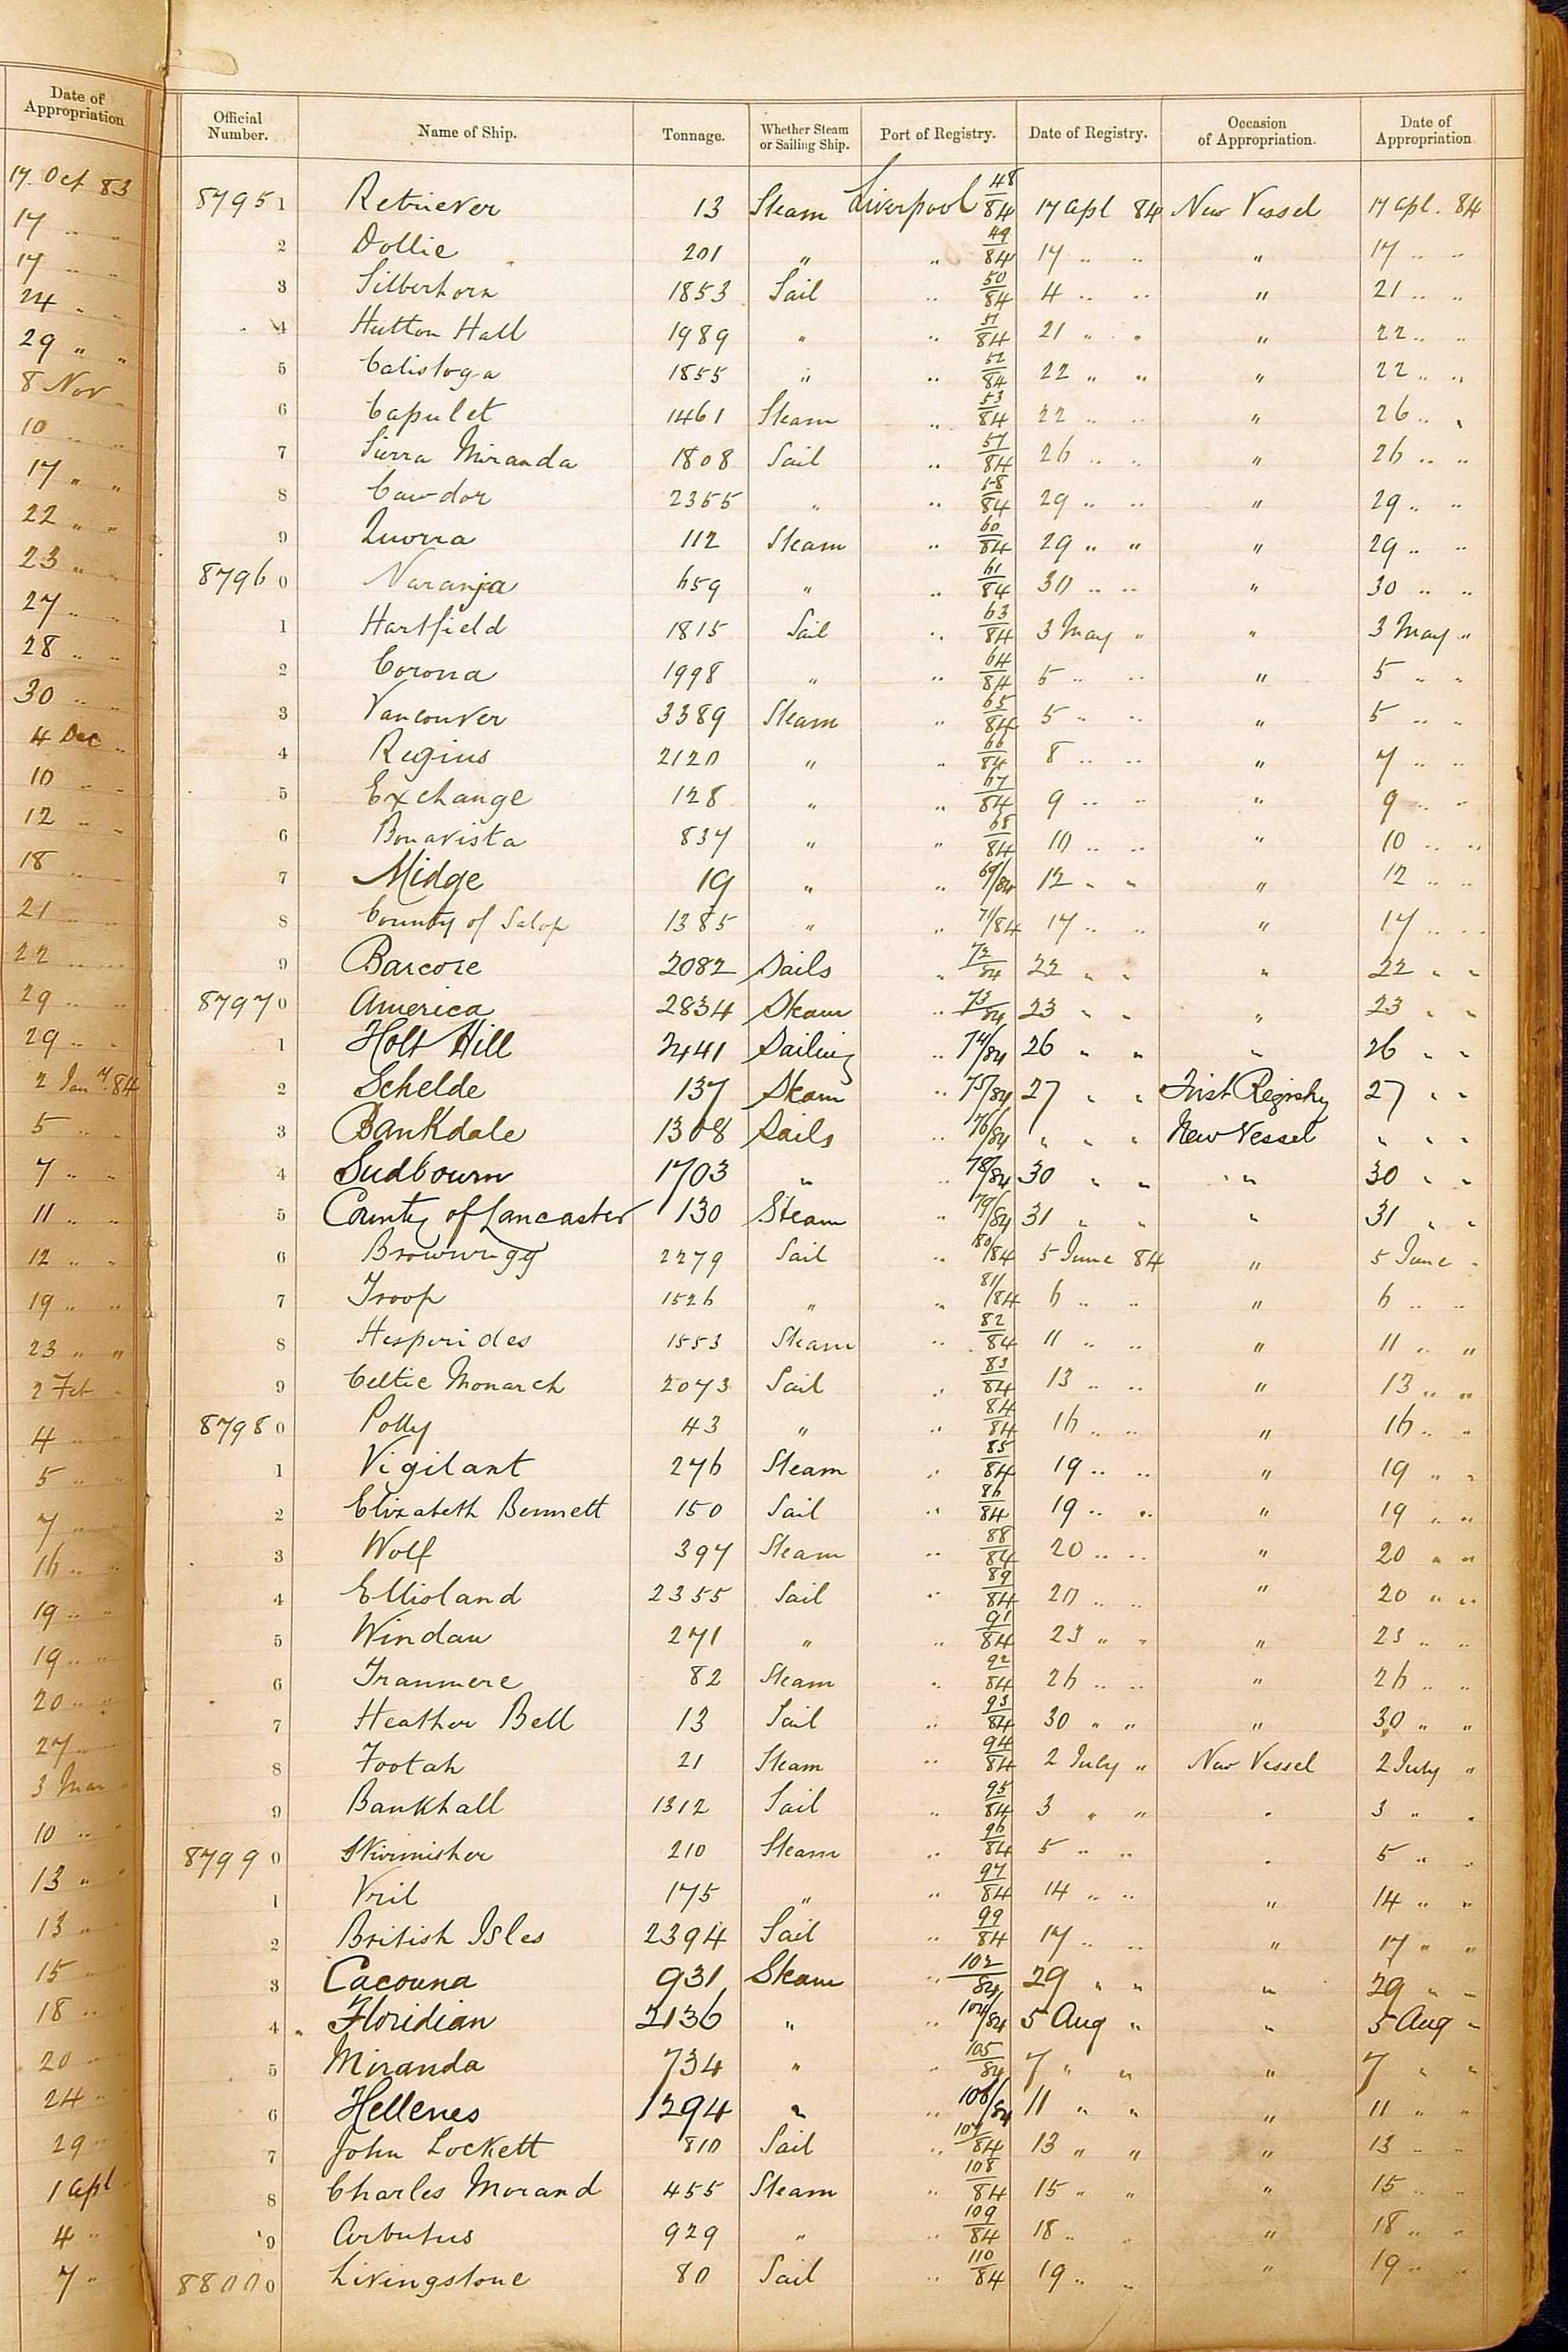 Date of
Appropriation
17 Oct 83
17 " "
17 " "
24 " "
29 " "
8 Nov "
10 " "
17 " "
22 " "
23 " "
27 " "
28 " "
30 " "
4 Dec "
10 " "
12 " "
18 " "
21 " "
22 " "
29 " "
29 " "
2 Jany 84
5 " "
7 " "
11 " "
12 " "
19 " "
23 " "
2 Feb "
4 " "
5 " "
7 " "
16 " "
19 " "
19 " "
20 " "
27 "
3 Mar
10 " "
13 " "
13 "
15 "
18 "
20 "
24 "
29 "
1 Apl "
4 "
7 "
Official Number. Name of Ship. Tonnage. Whether Steam or Sailing Ship. Port of Registry. Date of Registry. Occasion of Appropriation. Date of Appropriation
87951 Retriever 13 Steam Liverpool 48/84 17 Apl 84 New Vessel 17 Apl. 84
2 Dollie 201 " " 49/84 17 " " " 17 " "
3 Silberhorn 1853 Sail " 50/84 4 " " " 21 " "
4 Hutton Hall 1989 " " 51/84 21 " " " 22 " "
5 Calistoga 1855 " " 52/84 22 " " " 22 " "
6 Capulet 1461 Steam " 53/84 22 " " " 26 " "
7 Sierra Miranda 1808 Sail " 57/84 26 " " " 26 " "
8 Cawdor 2355 " " 58/84 29 " " " 29 " "
9 Quorra 112 Steam " 60/84 29 " " " 29 " "
87960 Naranja 659 " " 61/84 30 " " " 30 " "
1 Hartfield 1815 Sail " 63/84 3 May " " 3 May "
2 Corona 1998 " " 64/84 5 " " " 5 " "
3 Vancouver 3389 Steam " 65/84 5 " " " 5 " "
4 Regius 2120 " " 66/84 8 " " " 7 " "
5 Exchange 128 " " 67/84 9 " " " 9 " "
6 Bonavista 837 " " 68/84 10 " " " 10 " "
7 Midge 19 " " 69/84 12 " " " 12 " "
8 County of Salop 1385 " " 71/84 17 " " " 17 " "
9 Barcore 2082 Sails " 72/84 22 " " " 22 " "
87970 America 2834 Steam " 73/84 23 " " " 23 " "
1 Holt Hill 2441 Sailing " 74/84 26 " " " 26 " "
2 Schelde 137 Steam " 75/84 27 " " First Registry 27 " "
3 Bankdale 1308 Sails " 76/84 " " " New Vessel " " "
4 Sudbourn 1703 " " 78/84 30 " " " 30 " "
5 County of Lancaster 130 Steam " 79/84 31 " " " 31 " "
6 Brownrigg 2279 Sail " 80/84 5 June 84 " 5 June "
7 Troop 1526 " " 81/84 6 " " " 6 " "
8 Hesperides 1553 Steam " 82/84 11 " " " 11 " "
9 Celtic Monarch 2073 Sail " 83/84 13 " " " 13 " "
87980 Polly 43 " " 84/84 16 " " " 16 " "
1 Vigilant 276 Steam " 85/84 19 " " " 19 " "
2 Elizabeth Bennett 150 Sail " 86/84 19 " " " 19 " "
3 Wolf 397 Steam " 88/84 20 " " " 20 " "
4 Ellisland 2355 Sail " 89/84 20 " " " 20 " "
5 Windau 271 " " 91/84 23 " " " 23 " "
6 Tranmere 82 Steam " 92/84 26 " " " 26 " "
7 Heather Bell 13 Sail " 93/84 30 " " " 30 " "
8 Footah 21 Steam " 94/84 2 July " New Vessel 2 July "
9 Bankhall 1312 Sail " 95/84 3 " " " 3 " "
87990 Skirmisher 210 Steam " 96/84 5 " " " 5 " "
1 Vril 175 " " 97/84 14 " " " 14 " "
2 British Isles 2394 Sail " 99/84 17 " " " 17 " "
3 Cacouna 931 Steam " 102/84 29 " " " 29 " "
4 Floridian 2136 " " 104/84 5 Aug " " 5 Aug "
5 Miranda 734 " " 105/84 7 " " " 7 " "
6 Hellenes 1294 " " 106/84 11 " " " 11 " "
7 John Lockett 810 Sail " 107/84 13 " " " 13 " "
8 Charles Morand 455 Steam " 108/84 15 " " " 15 " "
9 Arbutus 929 " " 109/84 18 " " " 18 " "
88000 Livingstone 80 Sail " 110/84 19 " " " 19 " "